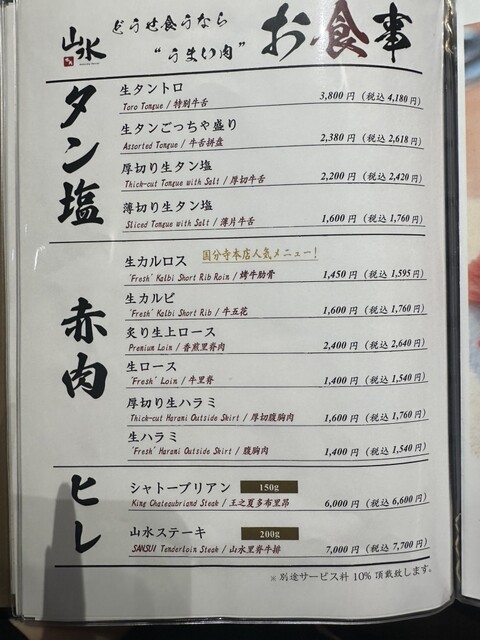 山水
どうせ食うなら
“うまい肉”
お食事
タン塩
生タントロ
3,800 円 (税込 4,180 円)
Toro Tongue / 特別牛舌
生タンごっちゃ盛り
2,380 円 (税込 2,618 円)
Assorted Tongue / 牛舌拼盘
厚切り生タン塩
2,200 円 (税込 2,420 円)
Thick-cut Tongue with Salt / 厚切牛舌
薄切り生タン塩
1,600 円 (税込 1,760 円)
Sliced Tongue with Salt / 薄片牛舌
赤肉
生カルロス
国分寺本店人気メニュー!
1,450 円 (税込 1,595 円)
'Fresh' Kalbi Short Rib Roin / 烤牛肋骨
生カルビ
1,600 円 (税込 1,760 円)
'Fresh' Kalbi Short Rib / 牛五花
炙り生上ロース
2,400 円 (税込 2,640 円)
Premium Loin / 香煎里脊肉
生ロース
1,400 円 (税込 1,540 円)
'Fresh' Loin / 牛里脊
厚切り生ハラミ
1,600 円 (税込 1,760 円)
Thick-cut Harami Outside Skirt / 厚切腹胸肉
生ハラミ
1,400 円 (税込 1,540 円)
'Fresh' Harami Outside Skirt / 腹胸肉
ヒレ
シャトーブリアン
150g
6,000 円 (税込 6,600 円)
King Chateaubriand Steak / 王之夏多布里昂
山水ステーキ
200g
7,000 円 (税込 7,700 円)
SANSUI Tenderloin Steak / 山水里脊牛排
※ 別途サービス料 10% 頂戴致します。